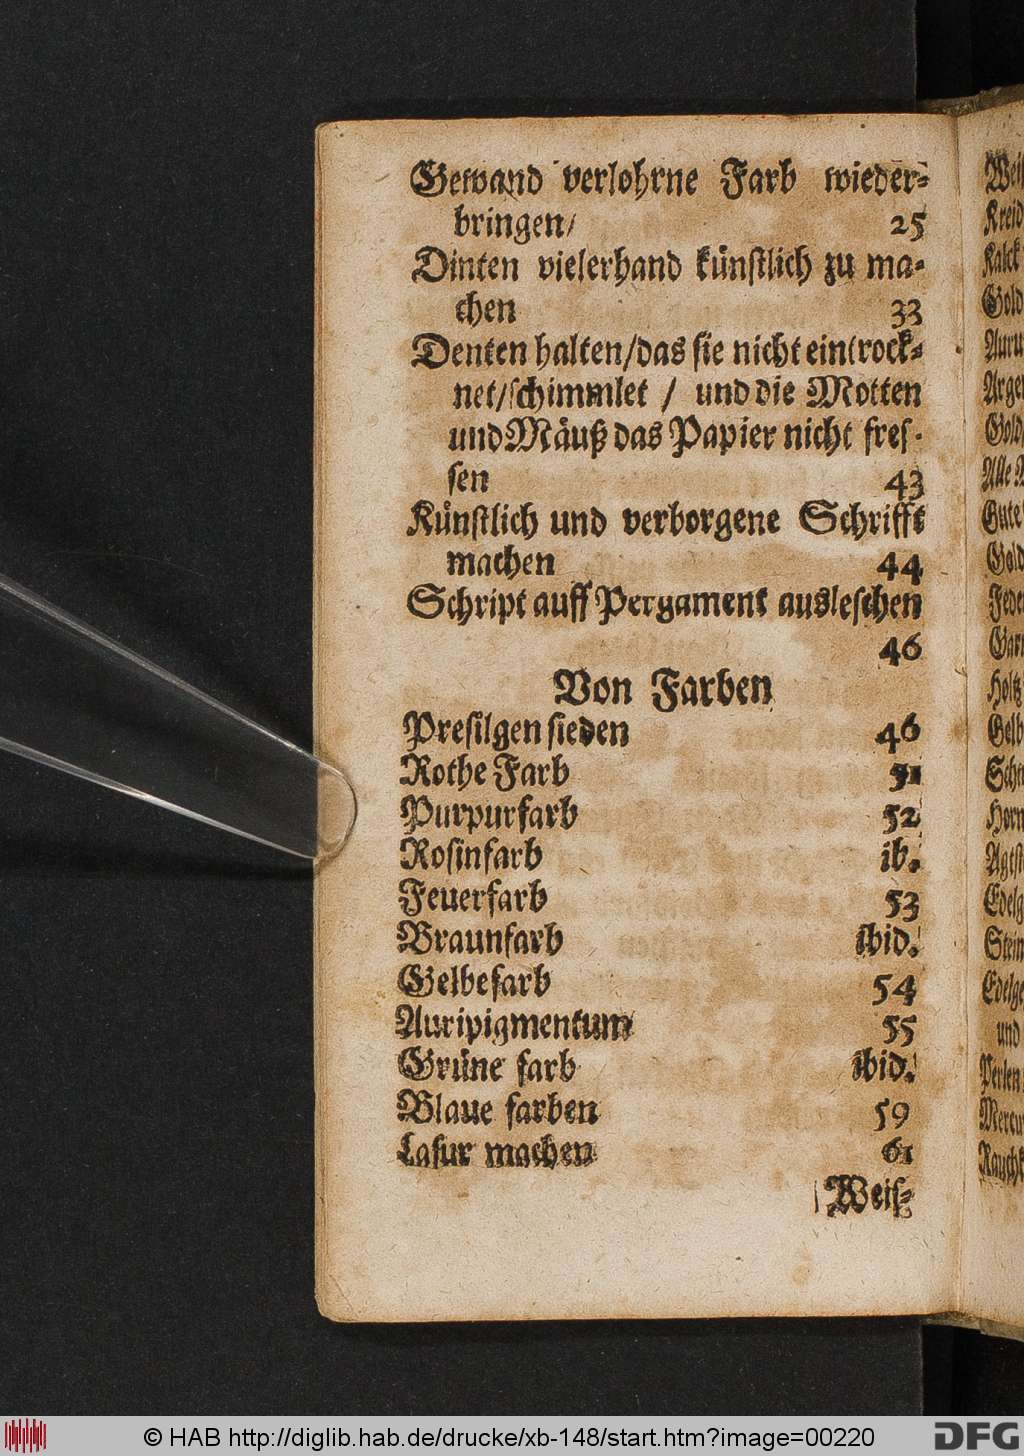 Gewand verlohrne Farb wieder-
bringen/ 25
Dinten vielerhand künstlich zu ma-
chen 33
Denten halten/das sie nicht eintrock-
net/schimmlet / und die Motten
und Mäuß das Papier nicht fres-
sen 43
Künstlich und verborgene Schrifft
machen 44
Schript auff Pergament ausleschen
46
Von Farben
Presilgen sieden 46
Rothe Farb 51
Purpurfarb 52
Rosinfarb ib.
Feuerfarb 53
Braunfarb ibid.
Gelbefarb 54
Auripigmentum 55
Grüne farb ibid.
Blaue farben 59
Lasur machen 61
Weis-
Kreid
Kalck
Gold
Gold
Alle
Gute
Gold
Feder
Holtz
Gelb
Horn
Stein
und
Perlen
© HAB http://diglib.hab.de/drucke/xb-148/start.htm?image=00220
DFG